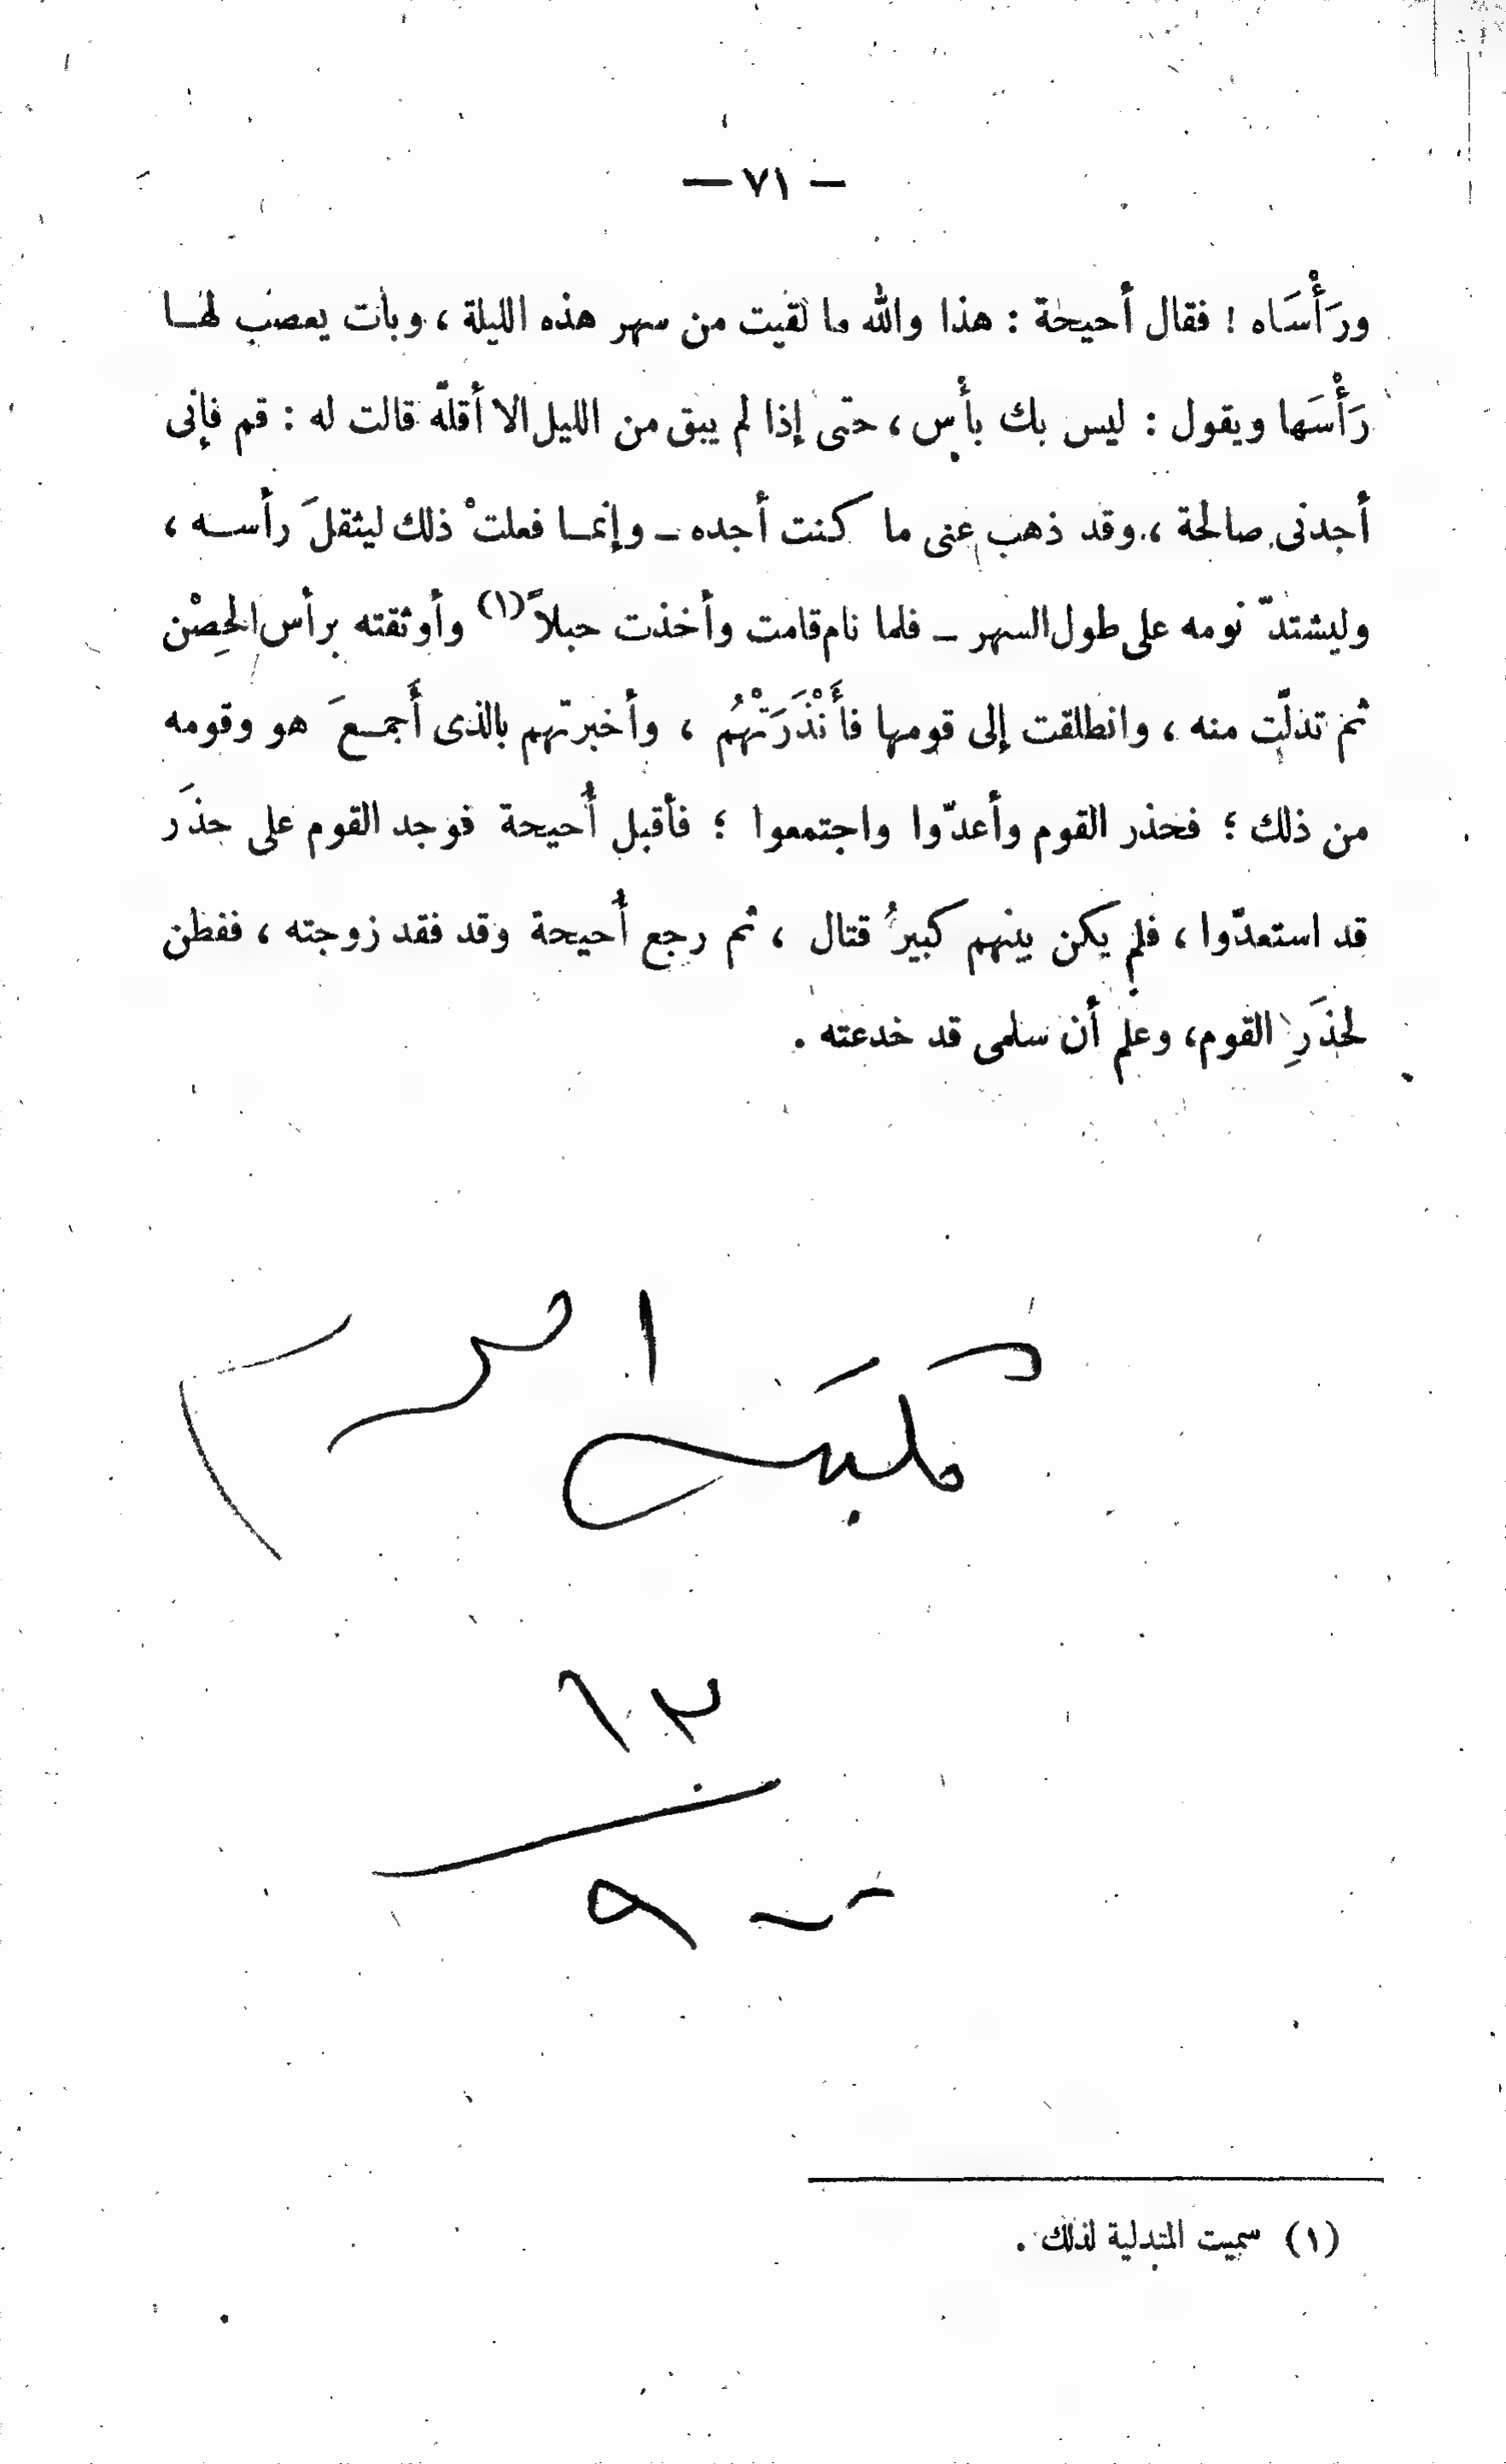 — ٧١ —
ورَأْسَاه ! فقال أحيحة : هذا والله ما لقيت من سهر هذه الليلة ، وبات يعصب لهـا
رَأْسَها ويقول : ليس بك بأس ، حتى إذا لم يبق من الليل الا أقلّه قالت له : قم فإنى
أجدنى صالحة ، وقد ذهب عنى ما كنت أجده – وإنمـا فعلتْ ذلك ليثقلَ رأسـه ،
وليشتدّ نومه على طول السهر – فلما نام قامت وأخذت حبلاً (١) وأوثقته برأس الحِصْن
ثم تدلّت منه ، وانطلقت إلى قومها فأَنْذَرَتْهُم ، وأخبرتهم بالذى أَجمـعَ هو وقومه
من ذلك ؛ فحذر القوم وأعدّوا واجتمعوا ؛ فأقبل أُحيحة فوجد القوم على حذَر
قد استعدّوا ، فلم يكن بينهم كبيرُ قتال ، ثم رجع أُحيحة وقد فقد زوجته ، ففطن
لحذَرِ القوم، وعلم أن سلمى قد خدعته .
(١) سميت المتدلية لذلك .